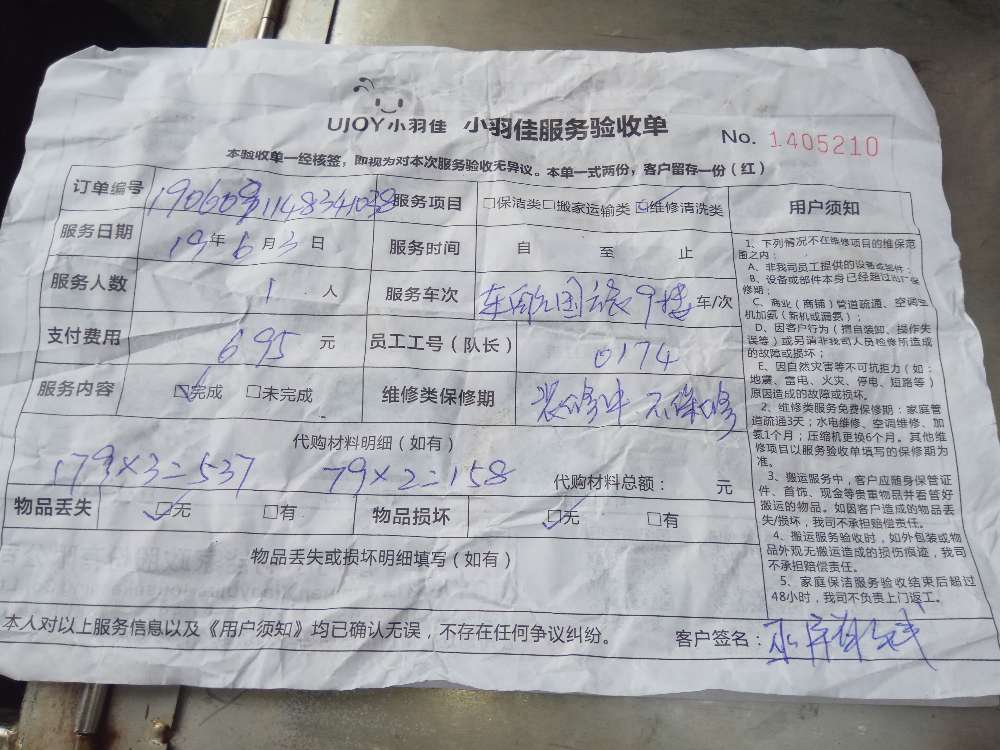 UJOY小羽佳 小羽佳服务验收单 No. 1405210
本验收单一经核签，即视为对本次服务验收无异议。本单一式两份，客户留存一份（红）
订单编号 服务项目 □保洁类□搬家运输类☑维修清洗类
服务日期 19年6月3日 服务时间 自 至 止
服务人数 1 人 服务车次 9楼 车/次
支付费用 695 元 员工工号（队长） 0174
服务内容 ☑完成 □未完成 维修类保修期 装修中 不保修
代购材料明细（如有）
179×3=537 79×2=158 代购材料总额： 元
物品丢失 ☑无 □有 物品损坏 ☑无 □有
物品丢失或损坏明细填写（如有）
本人对以上服务信息以及《用户须知》均已确认无误，不存在任何争议纠纷。 客户签名：
用户须知
1、下列情况不在维修项目的维保范
围之内：
A、非我司员工提供的设备或部件；
B、设备或部件本身已经超过出厂保
修期；
C、商业（商铺）管道疏通、空调主
机加氨（新机或漏氨）；
D、因客户行为（擅自装卸、操作失
误等）或另请非我司人员检修所造成
的故障或损坏；
E、因自然灾害等不可抗拒力（如：
地震、雷电、火灾、停电、短路等）
原因造成的故障或损坏。
2、维修类服务免费保修期：家庭管
道疏通3天；水电维修、空调维修、加
氨1个月；压缩机更换6个月。其他维
修项目以服务验收单填写的保修期为
准。
3、搬运服务中，客户应随身保管证
件、首饰、现金等贵重物品并看管好
搬运的物品。如因客户造成的物品丢
失/损坏，我司不承担赔偿责任。
4、搬运服务验收时，如外包装或物
品外观无搬运造成的损伤痕迹，我司
不承担赔偿责任。
5、家庭保洁服务验收结束后超过
48小时，我司不负责上门返工。